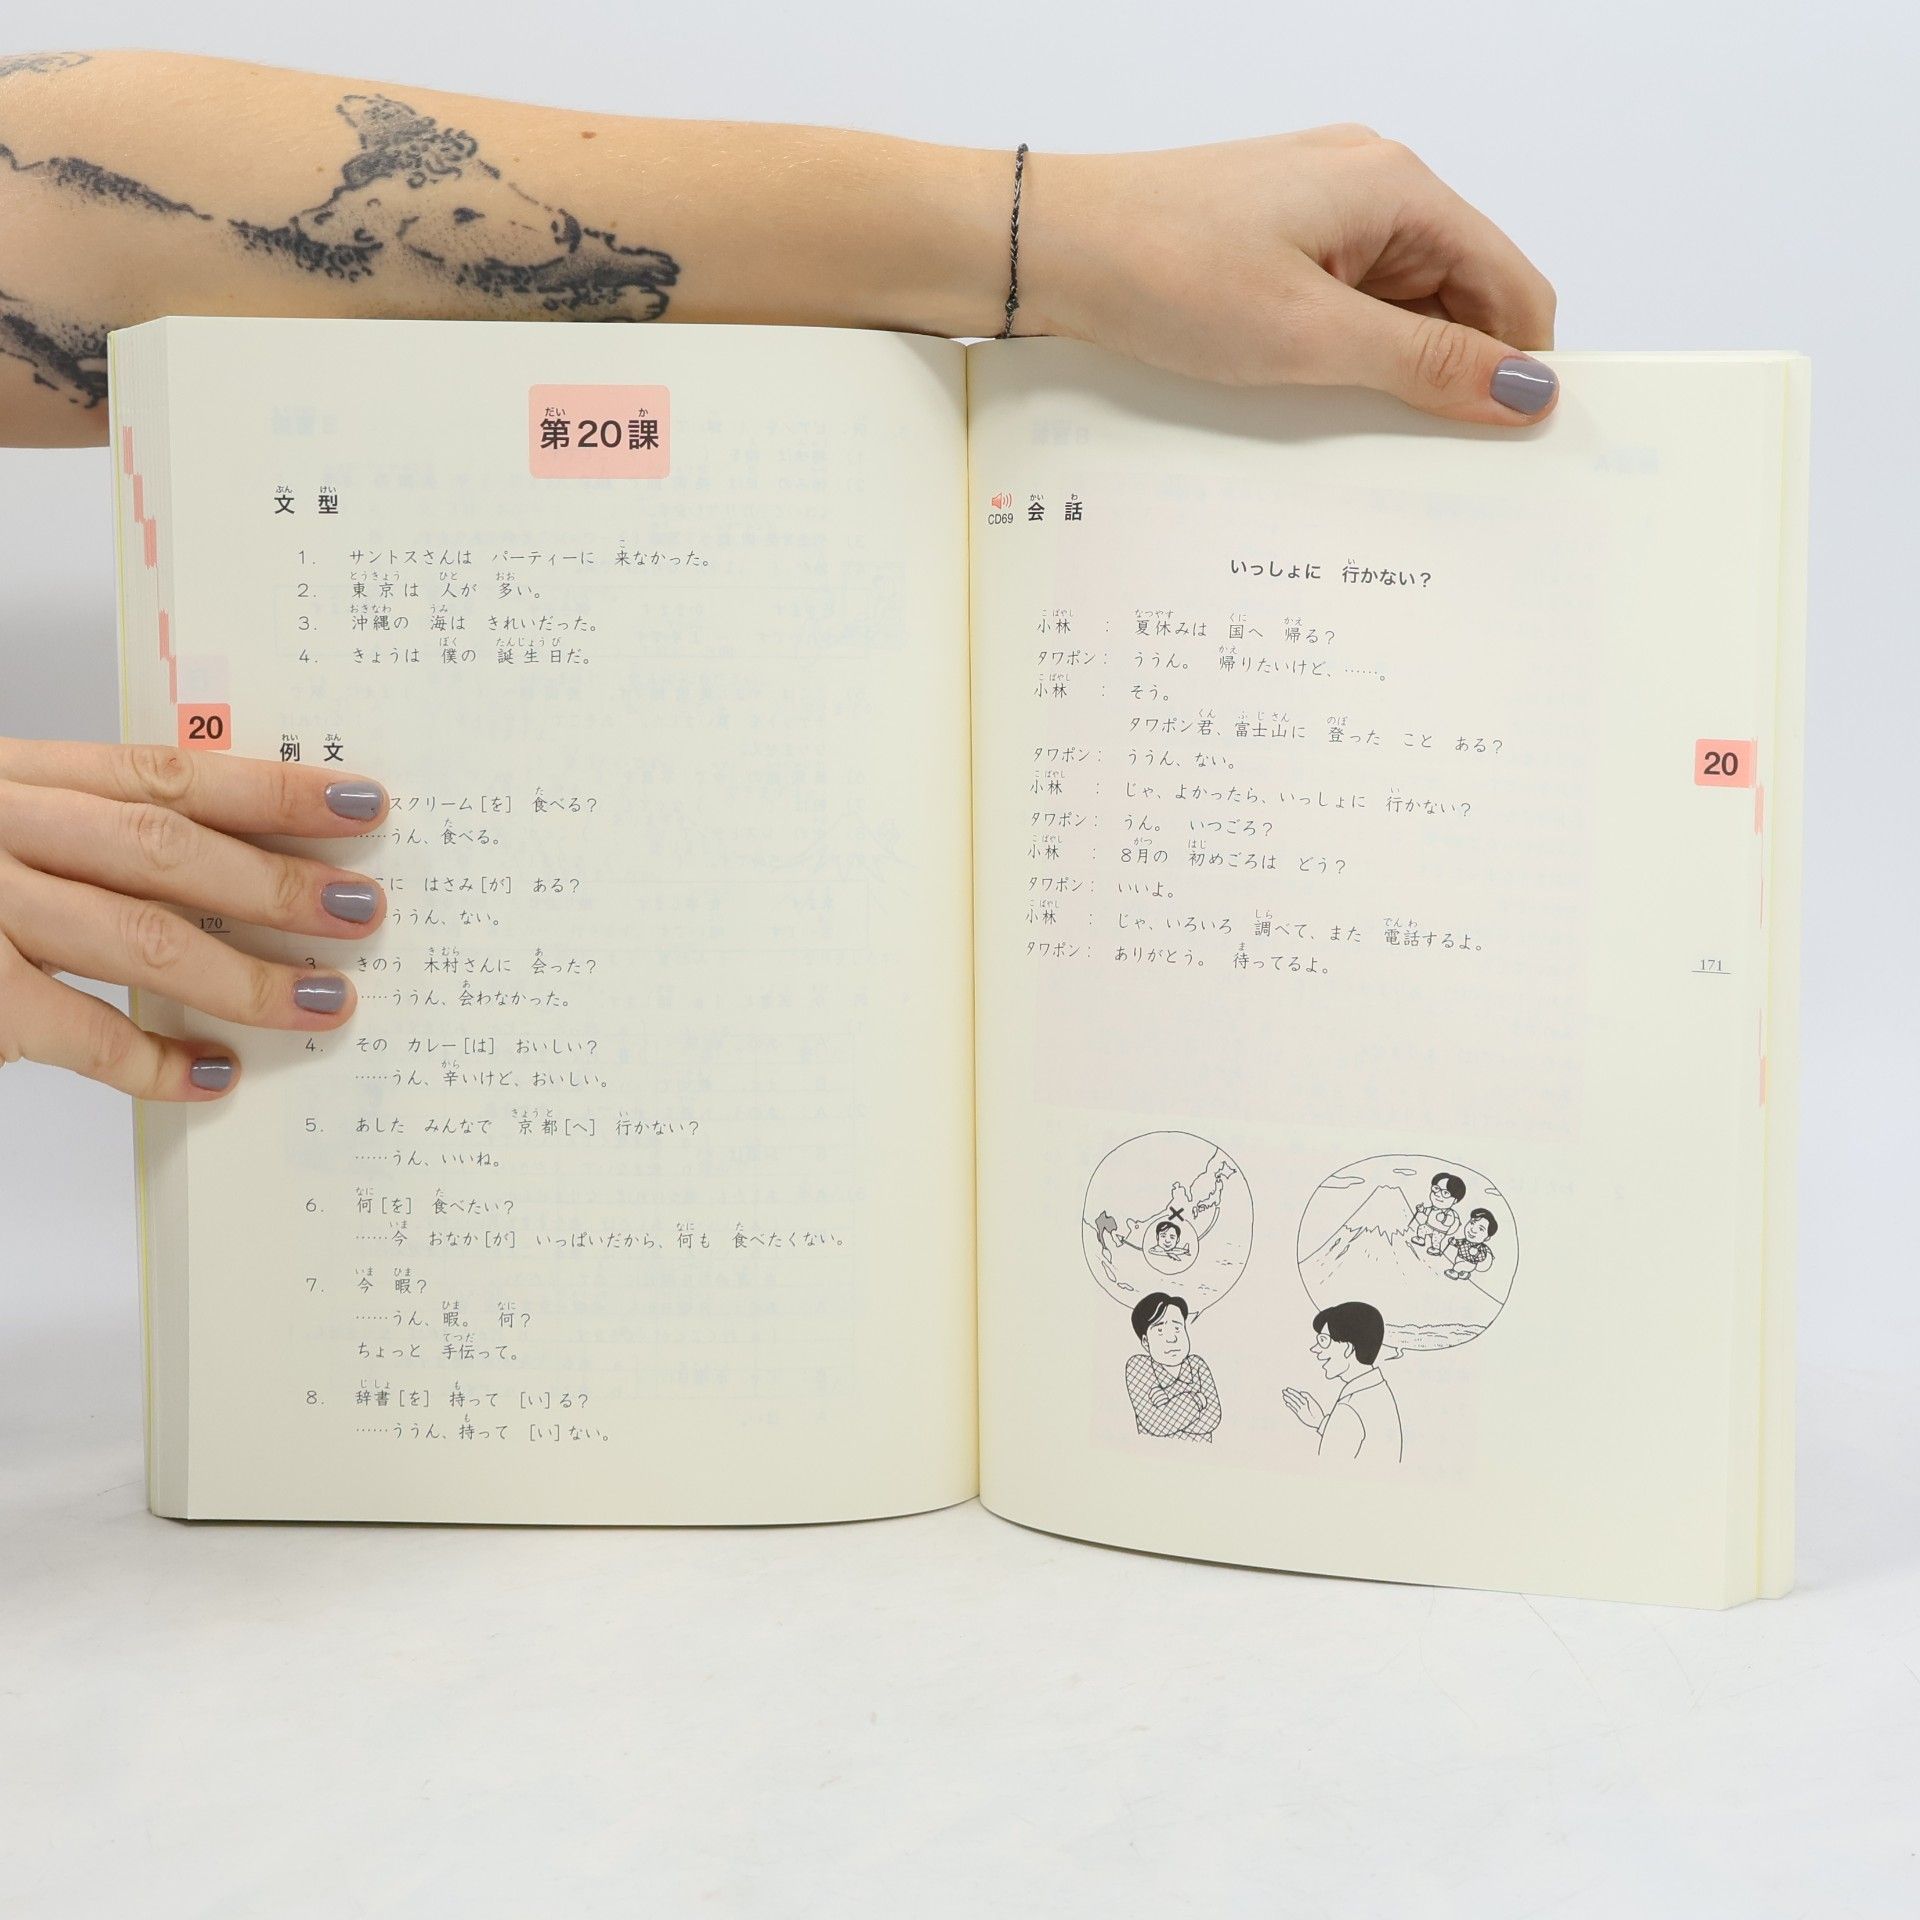 第20課
文型
1. サントスさんは パーティーに 来なかった。
2. 東京は 人が 多い。
3. 沖縄の 海は きれいだった。
4. きょうは 僕の 誕生日だ。
20
例文
スクリーム[を] 食べる?
……うん、食べる。
こに はさみ[が] ある?
……ううん、ない。
170
3. きのう 木村さんに 会った?
……ううん、会わなかった。
4. その カレー[は] おいしい?
……うん、辛いけど、おいしい。
5. あした みんなで 京都[へ] 行かない?
……うん、いいね。
6. 何[を] 食べたい?
……今 おなか[が] いっぱいだから、何も 食べたくない。
7. 今 暇?
……うん、暇。 何?
ちょっと 手伝って。
8. 辞書[を] 持って [い]る?
……ううん、持って [い]ない。
CD69 会話
いっしょに 行かない?
小林 : 夏休みは 国へ 帰る?
タワポン: ううん。 帰りたいけど、……。
小林 : そう。
タワポン君、富士山に 登った こと ある?
タワポン: ううん、ない。
小林 : じゃ、よかったら、いっしょに 行かない?
タワポン: うん。 いつごろ?
小林 : 8月の 初めごろは どう?
タワポン: いいよ。
小林 : じゃ、いろいろ 調べて、また 電話するよ。
タワポン: ありがとう。 待ってるよ。
20
171